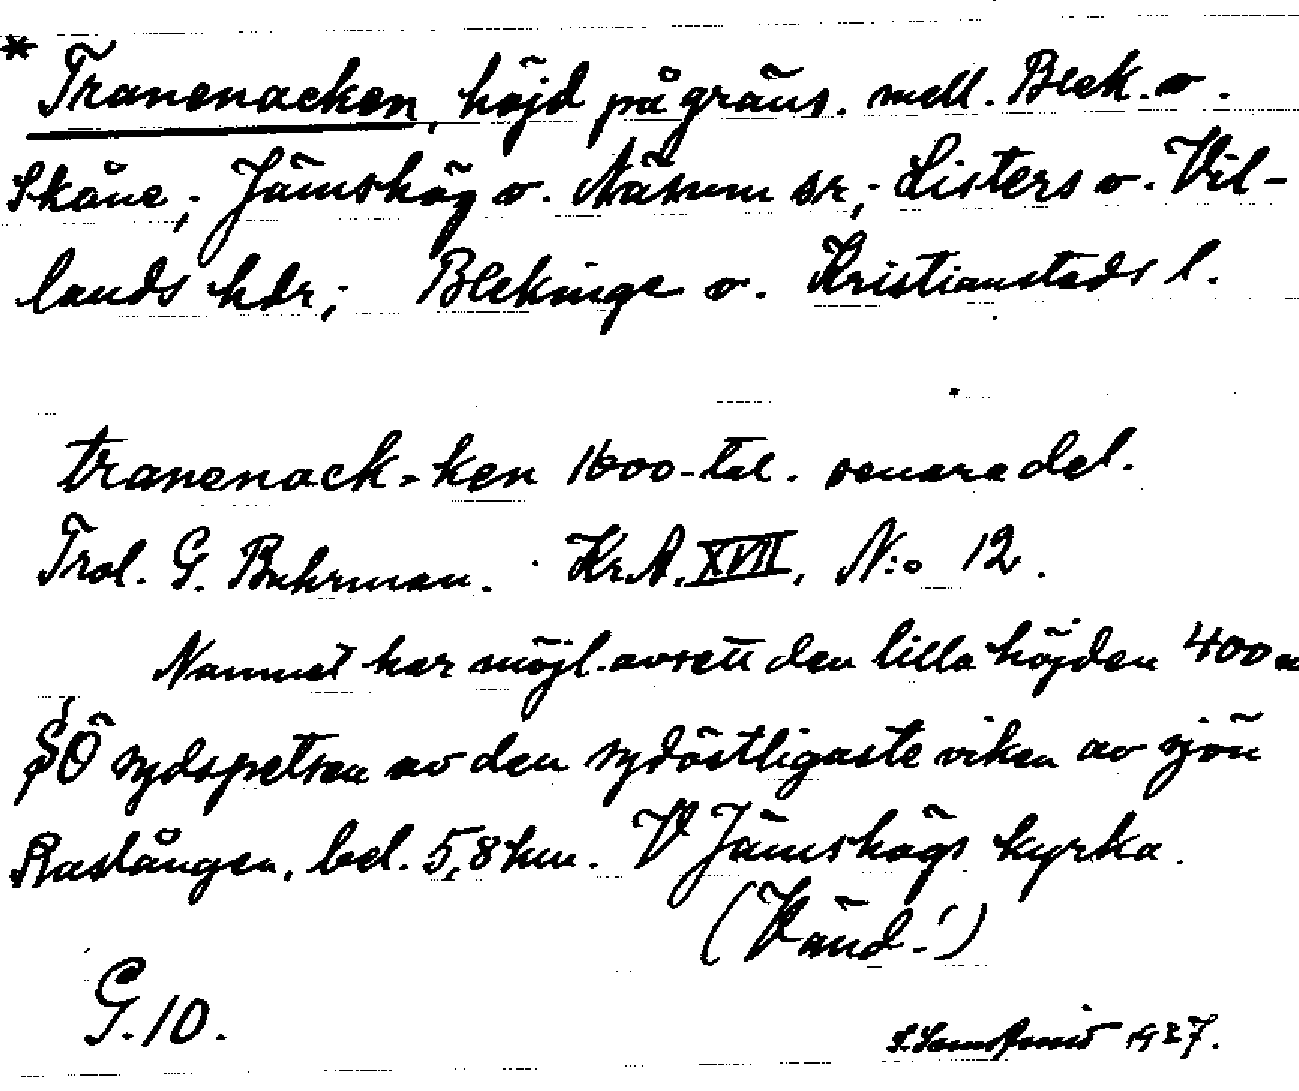 * Tranenacken, höjd på gräns. mell. Blek. o.
Skåne; Jämshög o. Näsum sr; Listers o. Vil-
lands hdr; Blekinge o. Kristianstads l.
tranenack-ken 1600-tal. senare del.
Trol. G. Buhrman. KrA. XVII, N:o 12.
Namnet har möjl. avsett den lilla höjden 400 m
SÖ sydspetsen av den sydöstligaste viken av sjön
Raslången, bel. 5,8 km. V Jämshögs kyrka.
(Vänd!)
G. 10.
1927.